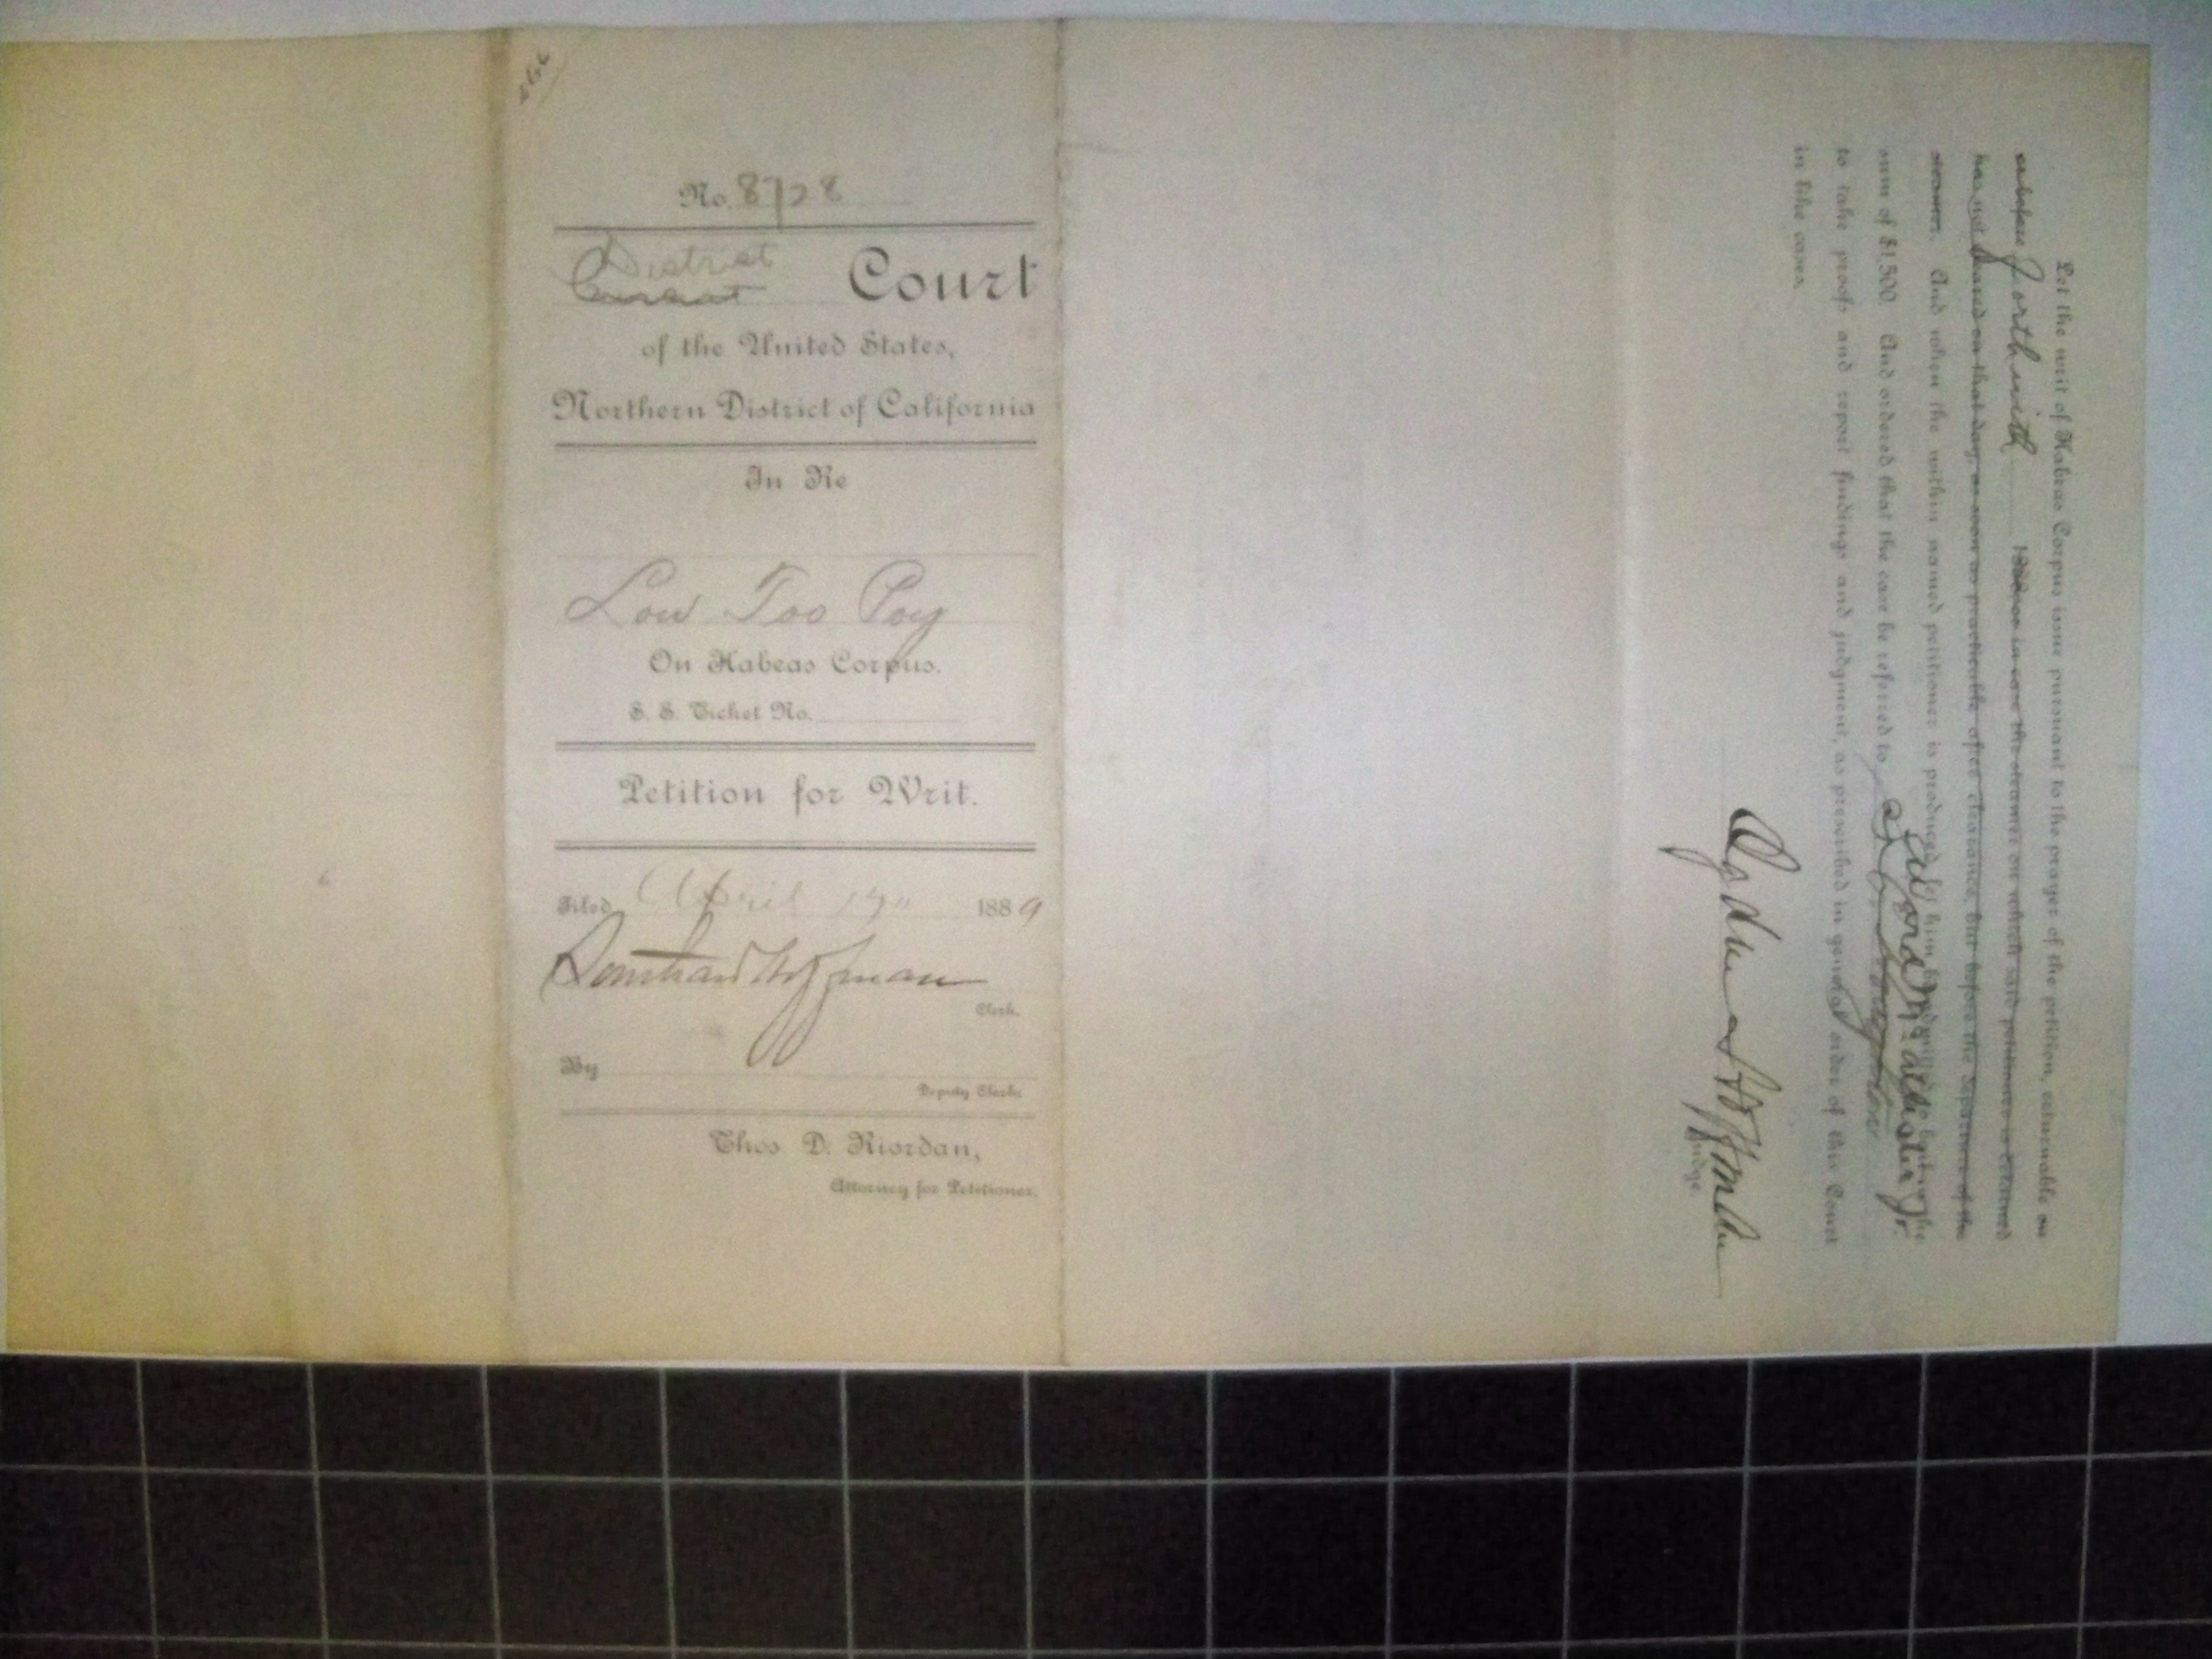 No. 8728
District
Circuit Court
of the United States,
Northern District of California
In Re
Low Too Poy
On Habeas Corpus.
S. S. Ticket No.
Petition for Writ.
Filed April 17" 1889
Southard Hoffman
Clerk.
By
Deputy Clerk.
Thos D. Riordan,
Attorney for Petitioner.
Let the writ of Habeas Corpus issue pursuant to the prayer of the petition, returnable on
forthwith in case the steamer on which said petitioner is detained
has not on that day, as soon as practicable after clearance, but before the departure of the
steamer. And when the within named petitioner is produced let him be
sum of $1,500. And ordered that the case be referred to
Ward McAllister Jr.
to take proofs and report findings and judgment, as prescribed in general order of this Court
in like cases.
Ogden Hoffman
Judge.